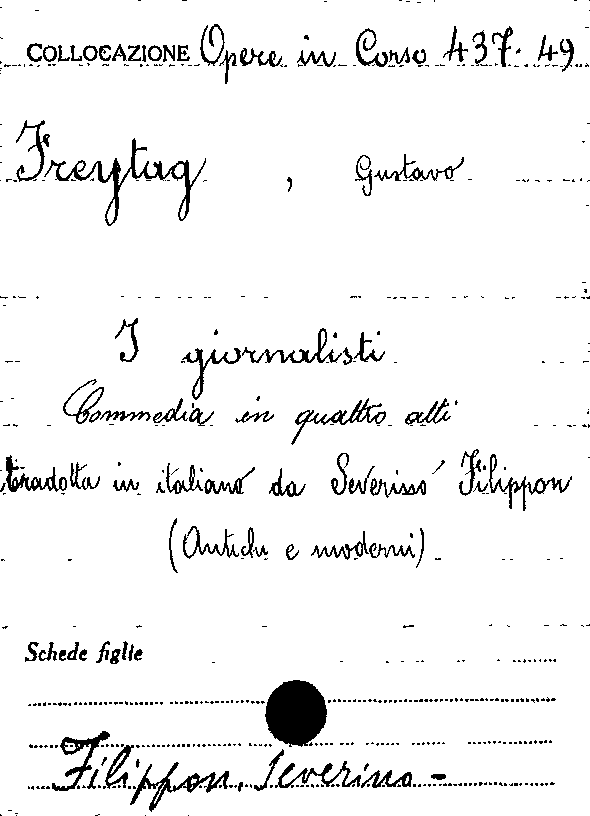 COLLOCAZIONE Opere in Corso 437. 49
Freytag, Gustavo
I giornalisti
Commedia in quattro atti
tradotta in italiano da Severino Filippon
(Antichi e moderni)
Schede figlie
Filippon, Severino -